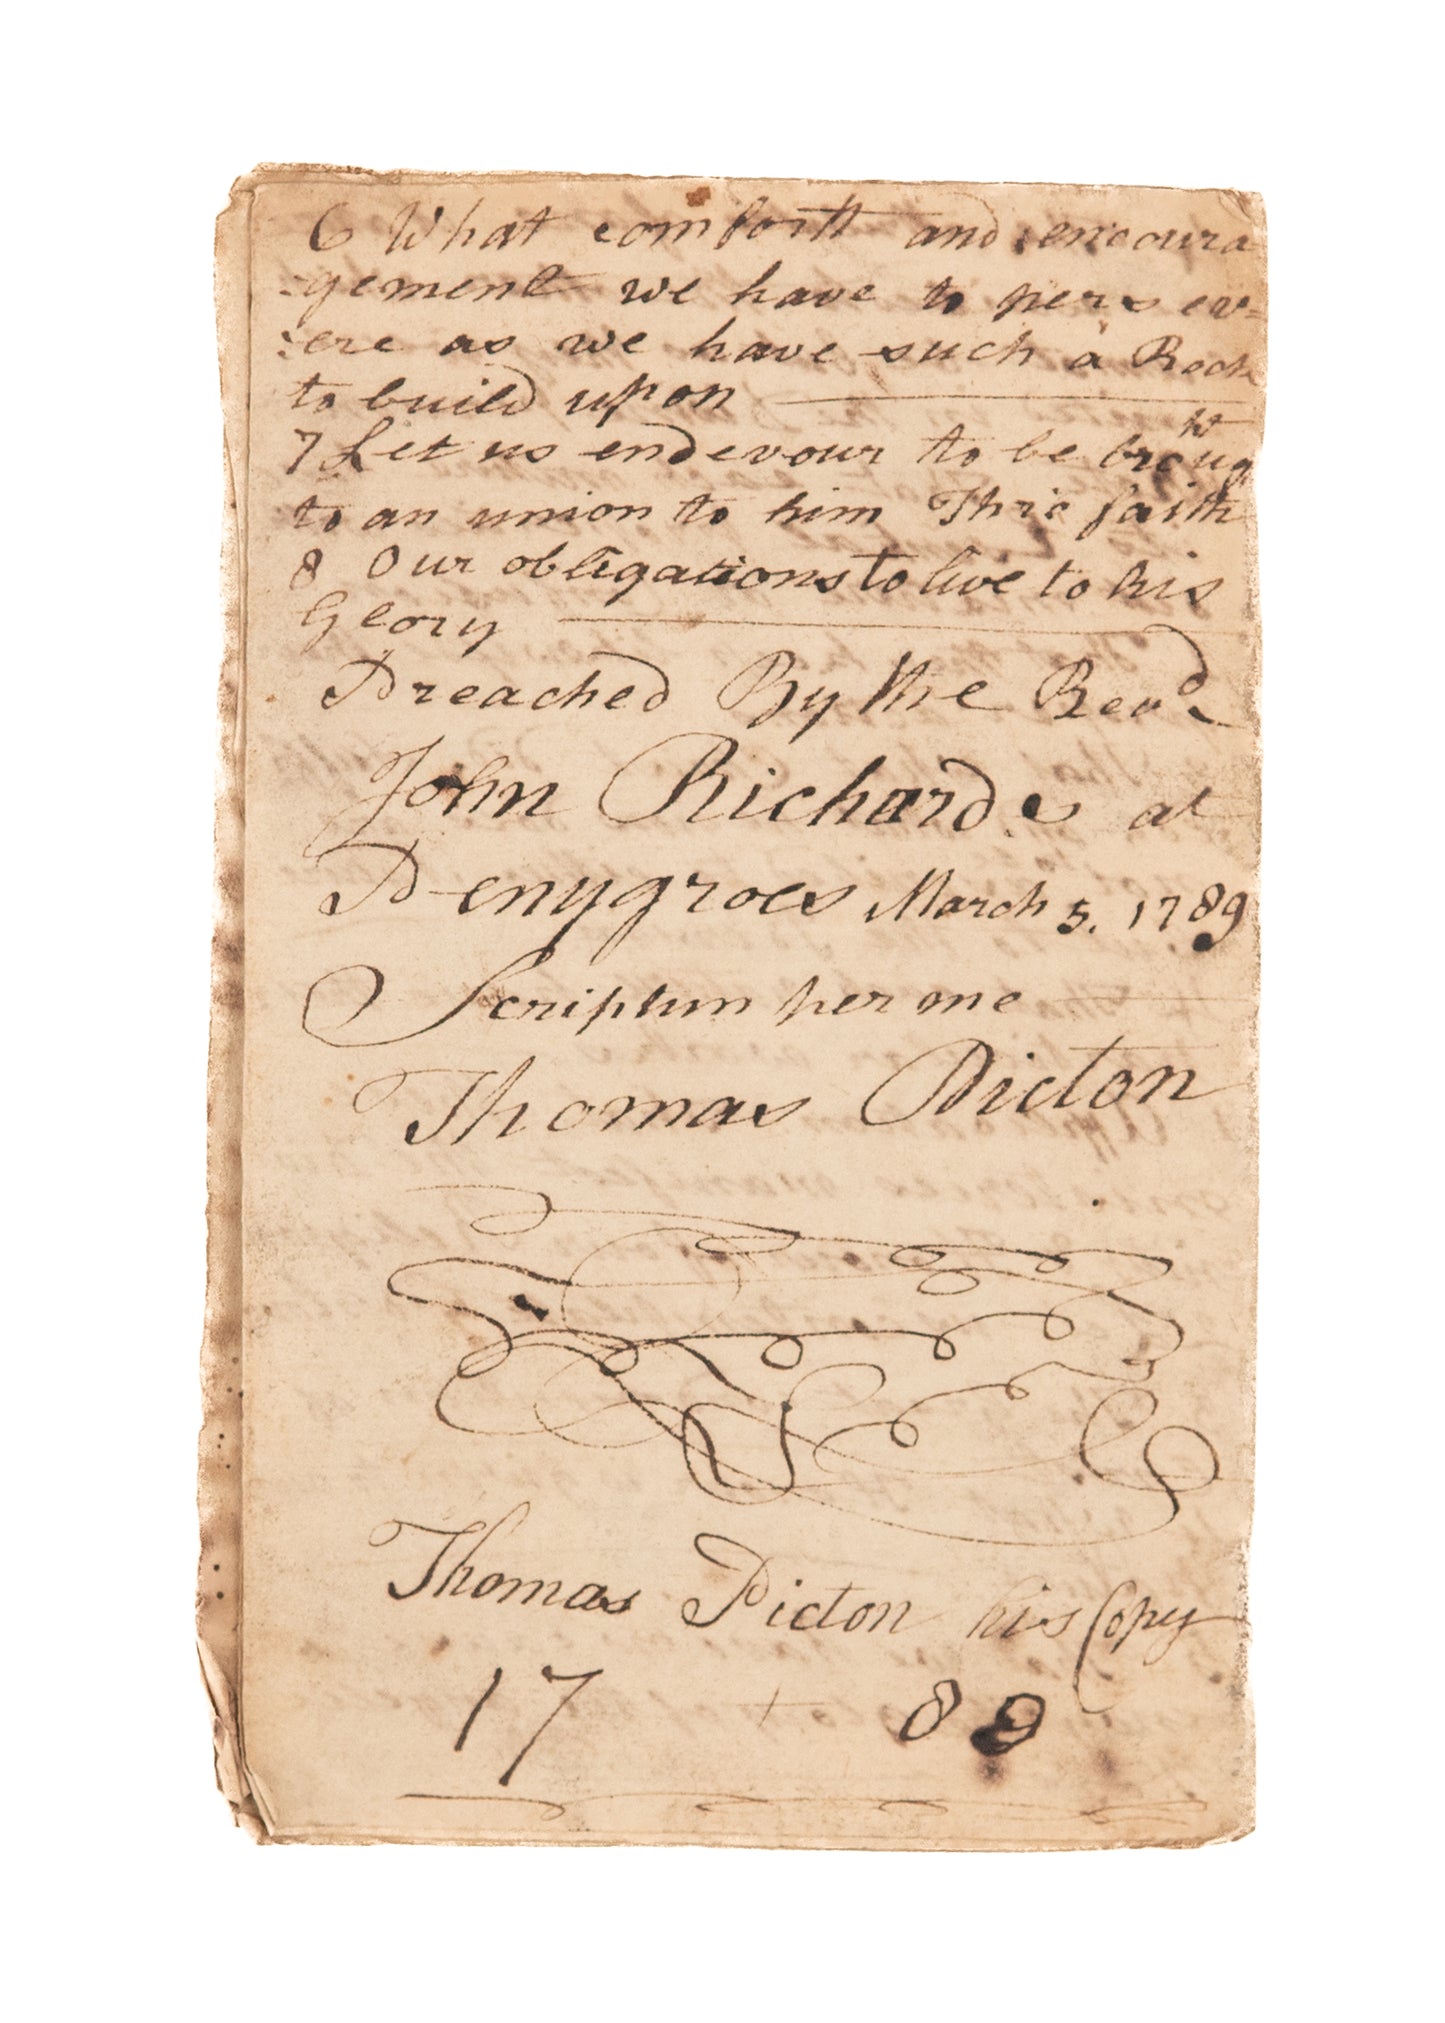 6 What comfortt and encoura
-gement we have to persev=
:ere as we have such a Rock
to build upon
7 Let us endevour to be brought
to an union to him Thro faith
8 Our obligations to live to his
Glory
Preached By the Revd
John Richards at
Penygroes March 5. 1789
Scriptum per me
Thomas Picton
Thomas Picton his Copy
17 89